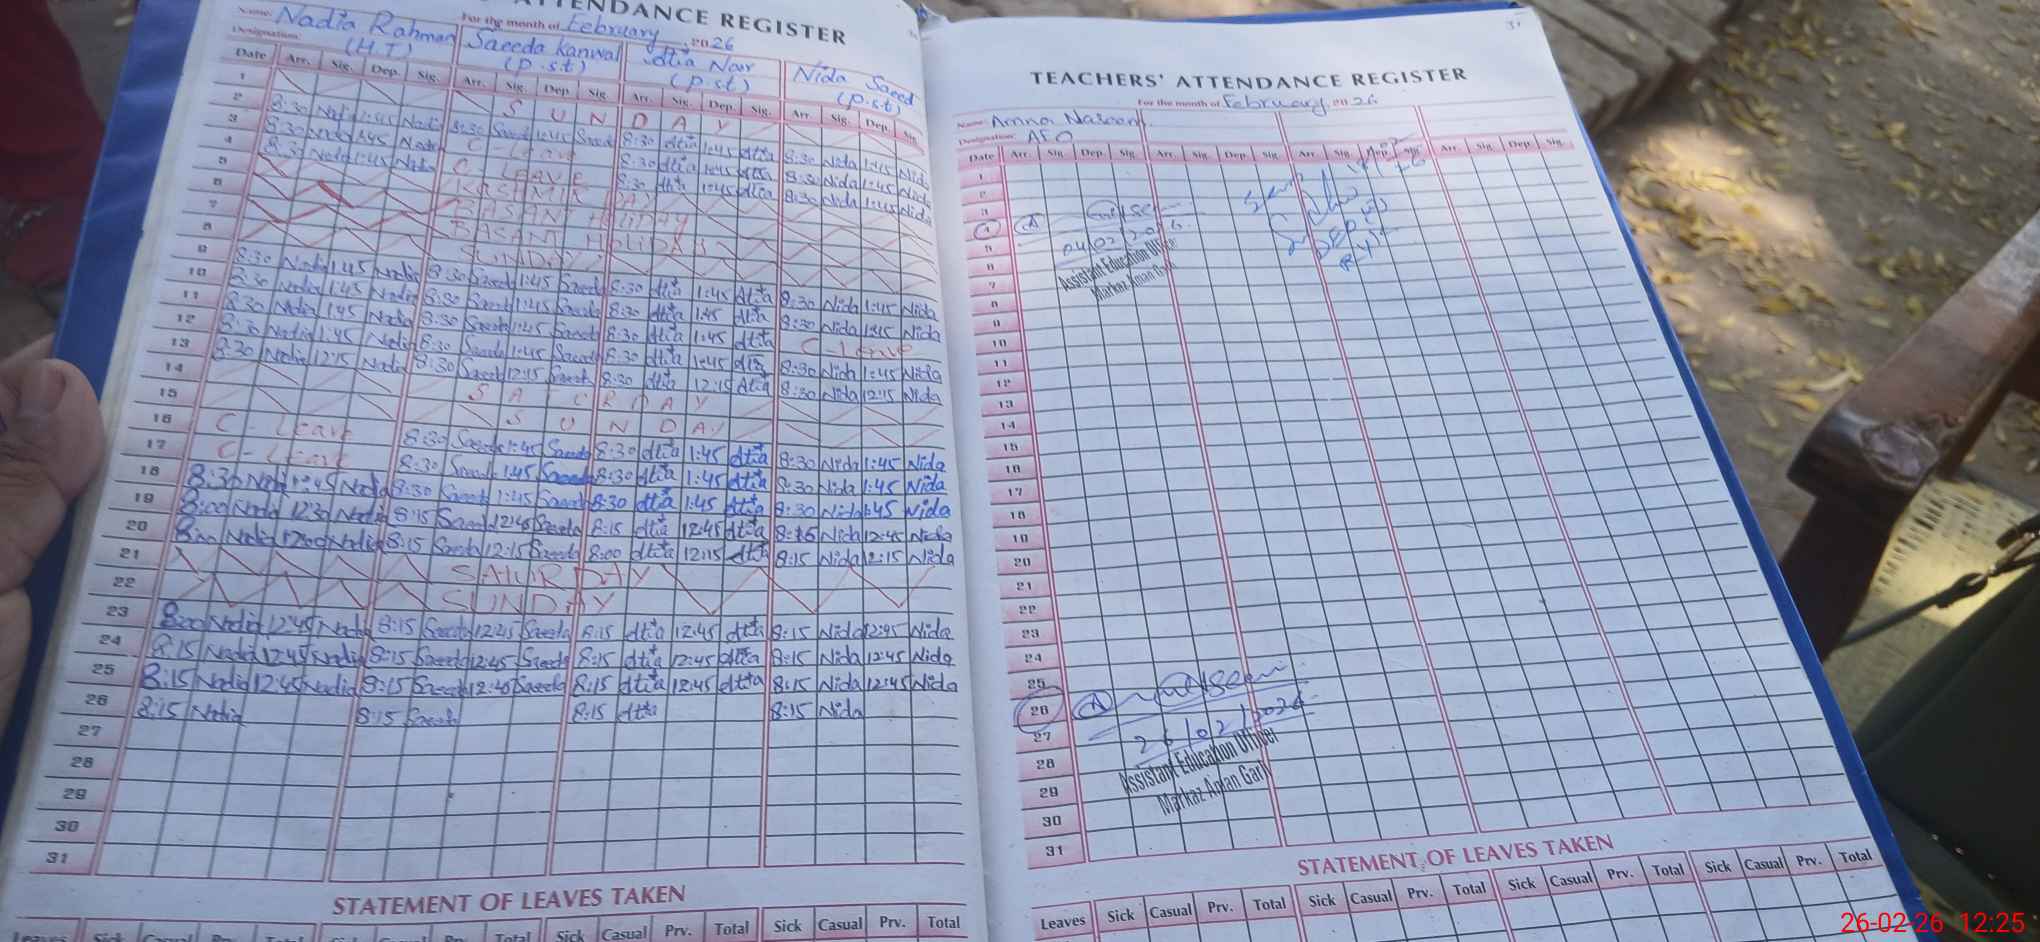 ATTENDANCE REGISTER
Name: Nadia Rahman For the month of February 2026
Designation: (H.T) Saeeda Kanwal (P.S.T) Attia Noor (P.S.t) Nida Saeed (P.S.t)
Date Arr. Sig. Dep. Sig. Arr. Sig. Dep. Sig. Arr. Sig. Dep. Sig. Arr. Sig. Dep. Sig.
1 S U N D A Y
2 8:30 Nadia 1:45 Nadia 8:30 Saeeda 1:45 Saeeda 8:30 Attia 1:45 Attia 8:30 Nida 1:45 Nida
3 8:30 Nadia 1:45 Nadia C-Leave 8:30 Attia 1:45 Attia 8:30 Nida 1:45 Nida
4 8:30 Nadia 1:45 Nadia C-LEAVE 8:30 Attia 1:45 Attia 8:30 Nida 1:45 Nida
5 KASHMIR DAY
6 BASANT HOLIDAY
7 BASANT HOLIDAY
8 SUNDAY
9 8:30 Nadia 1:45 Nadia 8:30 Saeeda 1:45 Saeeda 8:30 Attia 1:45 Attia 8:30 Nida 1:45 Nida
10 8:30 Nadia 1:45 Nadia 8:30 Saeeda 1:45 Saeeda 8:30 Attia 1:45 Attia 8:30 Nida 1:45 Nida
11 8:30 Nadia 1:45 Nadia 8:30 Saeeda 1:45 Saeeda 8:30 Attia 1:45 Attia C-Leave
12 8:30 Nadia 1:45 Nadia 8:30 Saeeda 1:45 Saeeda 8:30 Attia 1:45 Attia 8:30 Nida 1:45 Nida
13 8:30 Nadia 12:15 Nadia 8:30 Saeeda 12:15 Saeeda 8:30 Attia 12:15 Attia 8:30 Nida 12:15 Nida
14 S A T U R D A Y
15 S U N D A Y
16 C-Leave 8:30 Saeeda 1:45 Saeeda 8:30 Attia 1:45 Attia 8:30 Nida 1:45 Nida
17 C-Leave 8:30 Saeeda 1:45 Saeeda 8:30 Attia 1:45 Attia 8:30 Nida 1:45 Nida
18 8:30 Nadia 1:45 Nadia 8:30 Saeeda 1:45 Saeeda 8:30 Attia 1:45 Attia 8:30 Nida 1:45 Nida
19 8:00 Nadia 12:30 Nadia 8:15 Saeeda 12:45 Saeeda 8:15 Attia 12:45 Attia 8:15 Nida 12:45 Nida
20 8:00 Nadia Nadia 8:15 Saeeda 12:15 Saeeda 8:00 Attia 12:15 Attia 8:15 Nida 12:15 Nida
21 SATURDAY
22 SUNDAY
23 8:00 Nadia 12:45 Nadia 8:15 Saeeda 12:45 Saeeda 8:15 Attia 12:45 Attia 8:15 Nida 12:45 Nida
24 8:15 Nadia 12:45 Nadia 8:15 Saeeda 12:45 Saeeda 8:15 Attia 12:45 Attia 8:15 Nida 12:45 Nida
25 8:15 Nadia 12:45 Nadia 8:15 Saeeda 12:45 Saeeda 8:15 Attia 12:45 Attia 8:15 Nida 12:45 Nida
26 8:15 Nadia 8:15 Saeeda 8:15 Attia 8:15 Nida
27
28
29
30
31
STATEMENT OF LEAVES TAKEN
Leaves Sick Casual Prv. Total Sick Casual Prv. Total Sick Casual Prv. Total Sick Casual Prv. Total
TEACHERS' ATTENDANCE REGISTER
For the month of February 2026
Name: Amna Naseem
Designation: AEO
Date Arr. Sig. Dep. Sig. Arr. Sig. Dep. Sig. Arr. Sig. Dep. Sig. Arr. Sig. Dep. Sig.
1
2
3
4
04/02/2026
5
Assistant Education Officer
6
Markaz Aman Garh
7
8
9
10
11
12
13
14
15
16
17
18
19
20
21
22
23
24
25
26
26/02/2026
27
Assistant Education Officer
28
Markaz Aman Garh
29
30
31
STATEMENT OF LEAVES TAKEN
Leaves Sick Casual Prv. Total Sick Casual Prv. Total Sick Casual Prv. Total Sick Casual Prv. Total
26-02-26 12:25